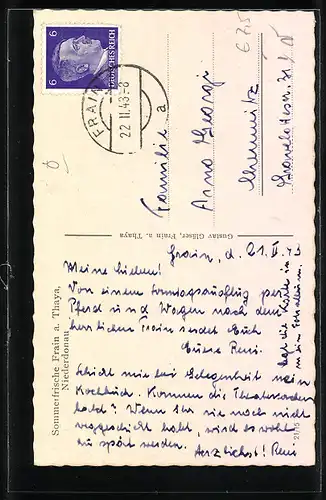 6 6
GROSSDEUTSCHES REICH
FRAIN
22 II.43-8
a
€ 7,5
Familie
Arno Georgi
Chemnitz
Gustav Gläser, Frain a. Thaya
Sommerfrische Frain a. Thaya,
Niederdonau
21/15
Frain, d. 21. II. 43
Meine Lieben!
Von einem Sonntagsausflug per
Pferd und Wagen nach dem
herrlichen Frain sendet Euch
Euere Reni.
Schickt mir bei Gelegenheit mein
Kochbuch. Kommen die Theaterkarten
bald? Wenn Ihr sie noch nicht
weggeschickt habt, wird es wohl
zu spät werden.
Herzlichst! Reni
Legt die Karte in
mein Fotoalbum.